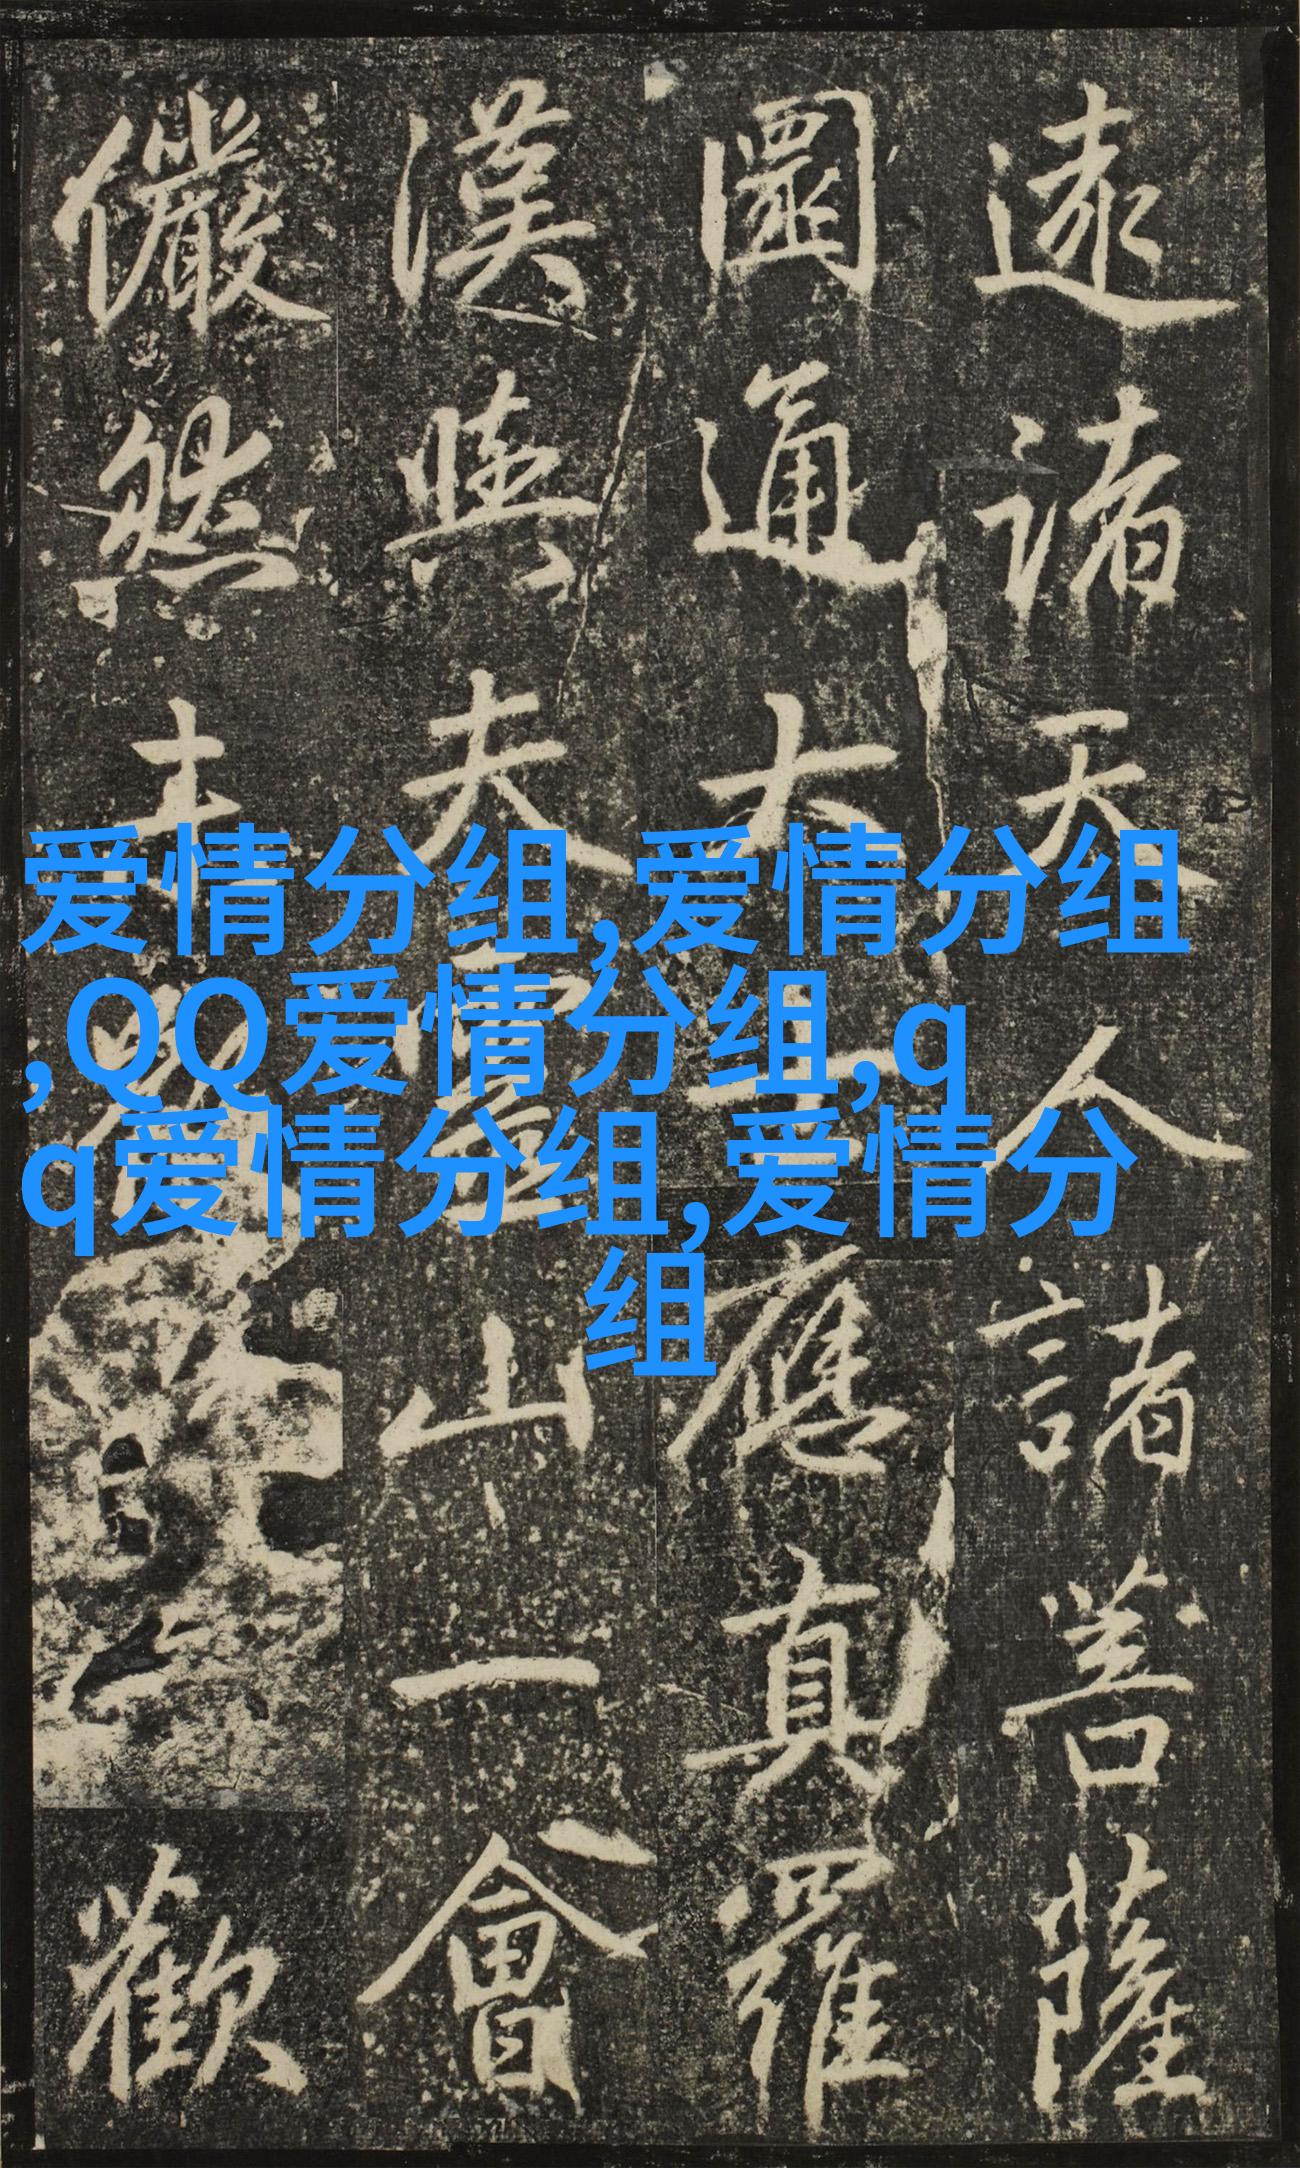 遠諸天人諸菩薩
圜通大士應真羅
漢與夫靈山一會
儼然歡
爱情分组,爱情分组
,QQ爱情分组,q
q爱情分组,爱情分
组